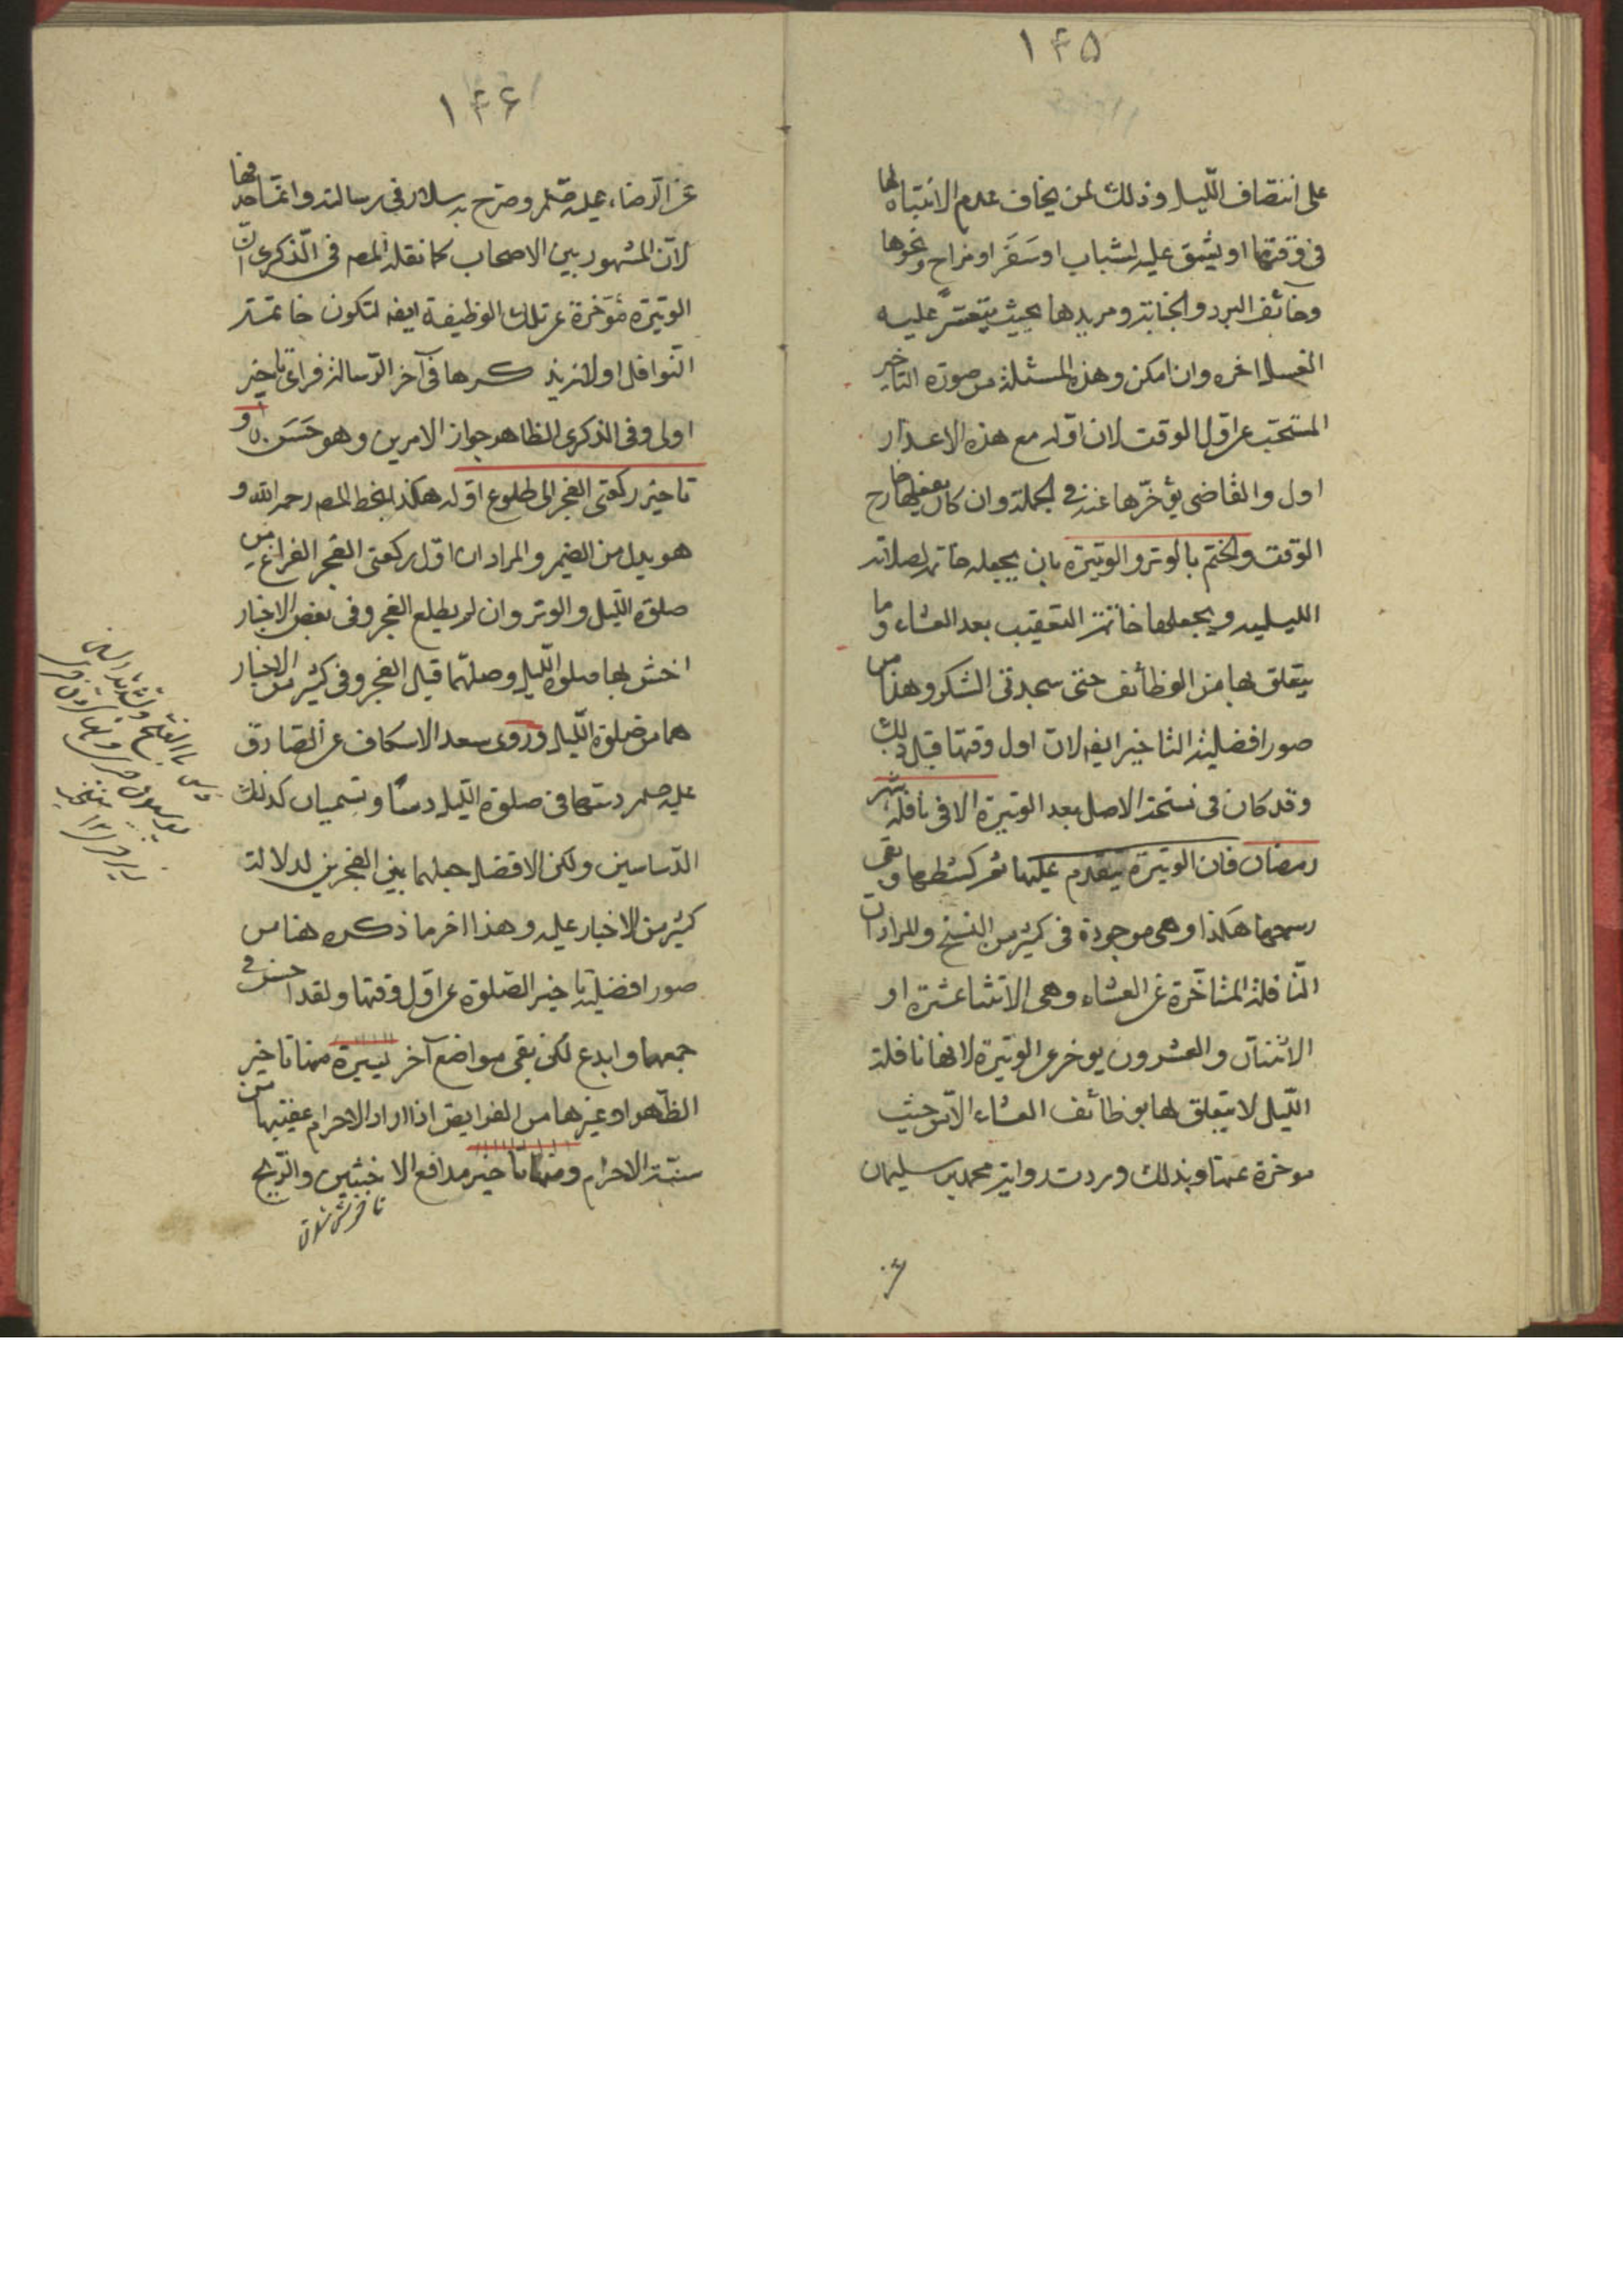 ١۴۵
على انتصاف الليل وذلك لمن يخاف عدم الانتباه لها
فى وقتها او يشق عليه لشباب او سَفَر او مزاج ونحوها
وخائف البرد والجنابة ومريدها بحيث يتعسّر عليه
الغسل اخره وان امكن وهذه المسئلة من صورة التاخير
المستحب عن اول الوقت لان اوله مع هذه الاعذار
اول والقاضى يؤخّرها عنه فى الجملة وان كان بعضها خارج
الوقت والختم بالوتر والوتيرة بان يجعله خاتمة لصلاته
الليلية ويجعلها خاتمة التعقيب بعد العشاء وما
يتعلق بها من الوظائف حتى سجدتى الشكر وهذا من
صور افضلية التاخير ايضه لان اول وقتها قبل ذلك
وقد كان فى نسخة الاصل بعد الوتيرة الا فى نافلة شهر
رمضان فان الوتيرة يتقدم عليها ثم كشطها وبقى
رسمها هكذا وهى موجودة فى كثير من النسخ والمراد ان
النّافلة المتاخّرة عن العشاء وهى الاثنتا عشرة او
الاثنتان والعشرون يوخر عن الوتيرة لانها نافلة
اللّيل لا يتعلق لها بوظائف العشاء الا من حيث
موخرة عنها وبذلك وردت رواية محمد بن سليمان
١۴۶
عن الرضاء عليه صلم وصرّح به سلار فى رسالته وانما حذفها
لانّ المشهور بين الاصحاب كما نقله المصه فى الذكرى انّ
الوتيرة مُؤخرة عن تلك الوظيفة ايضه لتكون خاتمة
النوافل اولا يزيد كرها فى آخر الرّسالة فراى تاخير
اولى وفى الذكرى الظاهر جواز الامرين وهو حَسَن و
تاخير ركعتى الفجر الى طلوع اوله هكذا بخط المصه رحمه الله و
هو بدل من الضمير والمراد ان اول ركعتى الفجر الفراغ من
صلوة اللّيل والوتر وان لم يطلع الفجر وفى بعض الاخبار
احش بها صلوة الليل وصلّهما قبل الفجر وفى كثير من الاخبار
هما من صلوة اللّيل وروى سعد الاسكاف عن الصادق
عليه صلم دسّهما فى صلوة الليل دسّا وتسميان كذلك
الدّساسين ولكن الافضل جعلهما بين الفجرين لدلالة
كثير من الاخبار عليه وهذا اخر ما ذكره هنا من
صور افضلية تاخير الصّلوة عن اول وقتها ولقد احسن فى
جمعها وابدع لكن بقى مواضع آخر يسيرة منها تاخير
الظّهر او غيرها من الفرايض اذا اراد الاحرام عقيبها من
سنّة الاحرام ومنها تاخير مدافع الاخبثين والرّيح